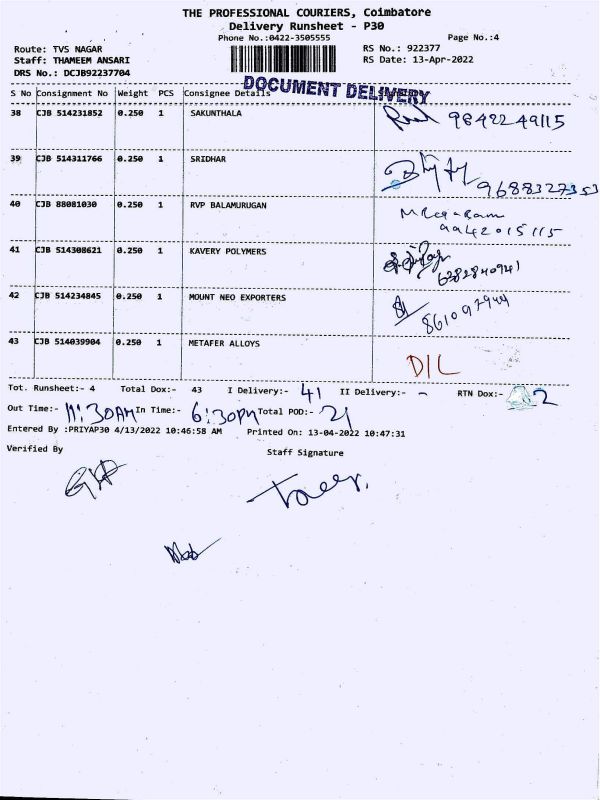 THE PROFESSIONAL COURIERS, Coimbatore
Delivery Runsheet - P30
Phone No.:0422-3505555
Page No.:4
Route: TVS NAGAR
RS No.: 922377
Staff: THAMEEM ANSARI
RS Date: 13-Apr-2022
DRS No.: DCJB92237704
DOCUMENT DELIVERY
S No Consignment No Weight PCS Consignee Details
38 CJB 514231852 0.250 1 SAKUNTHALA 9842249115
39 CJB 514311766 0.250 1 SRIDHAR 9688327353
40 CJB 88081030 0.250 1 RVP BALAMURUGAN
9942015115
41 CJB 514308621 0.250 1 KAVERY POLYMERS
6282840941
42 CJB 514234845 0.250 1 MOUNT NEO EXPORTERS
861097944
43 CJB 514039904 0.250 1 METAFER ALLOYS
D/L
Tot. Runsheet:- 4 Total Dox:- 43 I Delivery:- 41 II Delivery:- - RTN Dox:- 2
Out Time:- 11:30AM In Time:- 6:30PM Total POD:- 21
Entered By :PRIYAP30 4/13/2022 10:46:58 AM Printed On: 13-04-2022 10:47:31
Verified By
Staff Signature